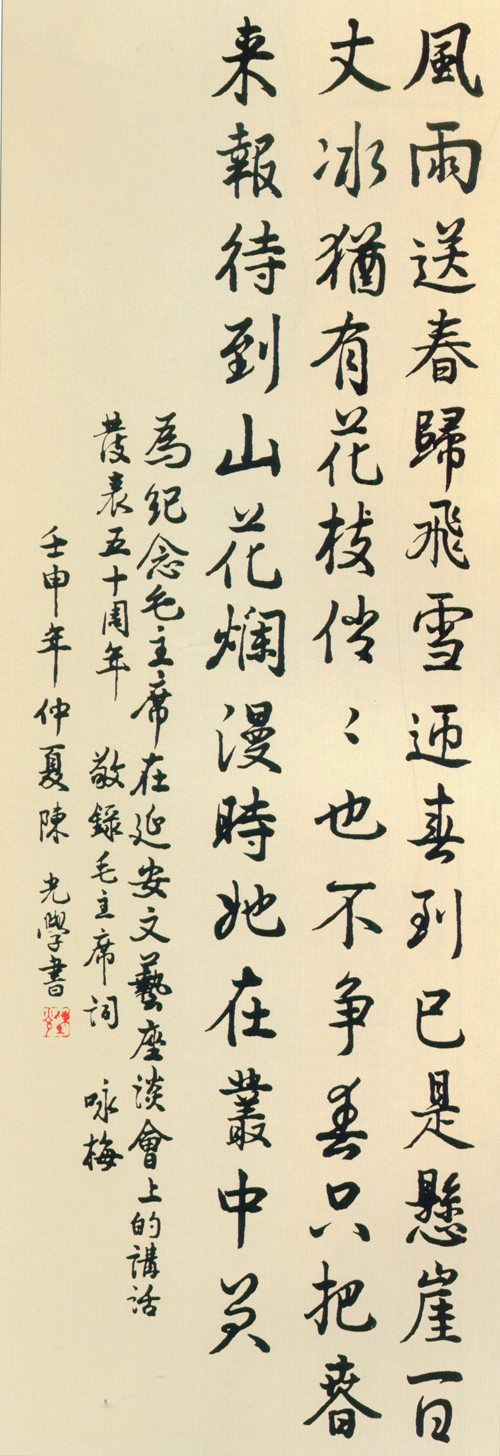 風雨送春歸飛雪迎春到已是懸崖百
丈冰猶有花枝俏〻也不争春只把春
来報待到山花爛漫時她在叢中笑
為紀念毛主席在延安文藝座談會上的講話
發表五十周年 敬録毛主席詞 咏梅
壬申年仲夏陳光學書